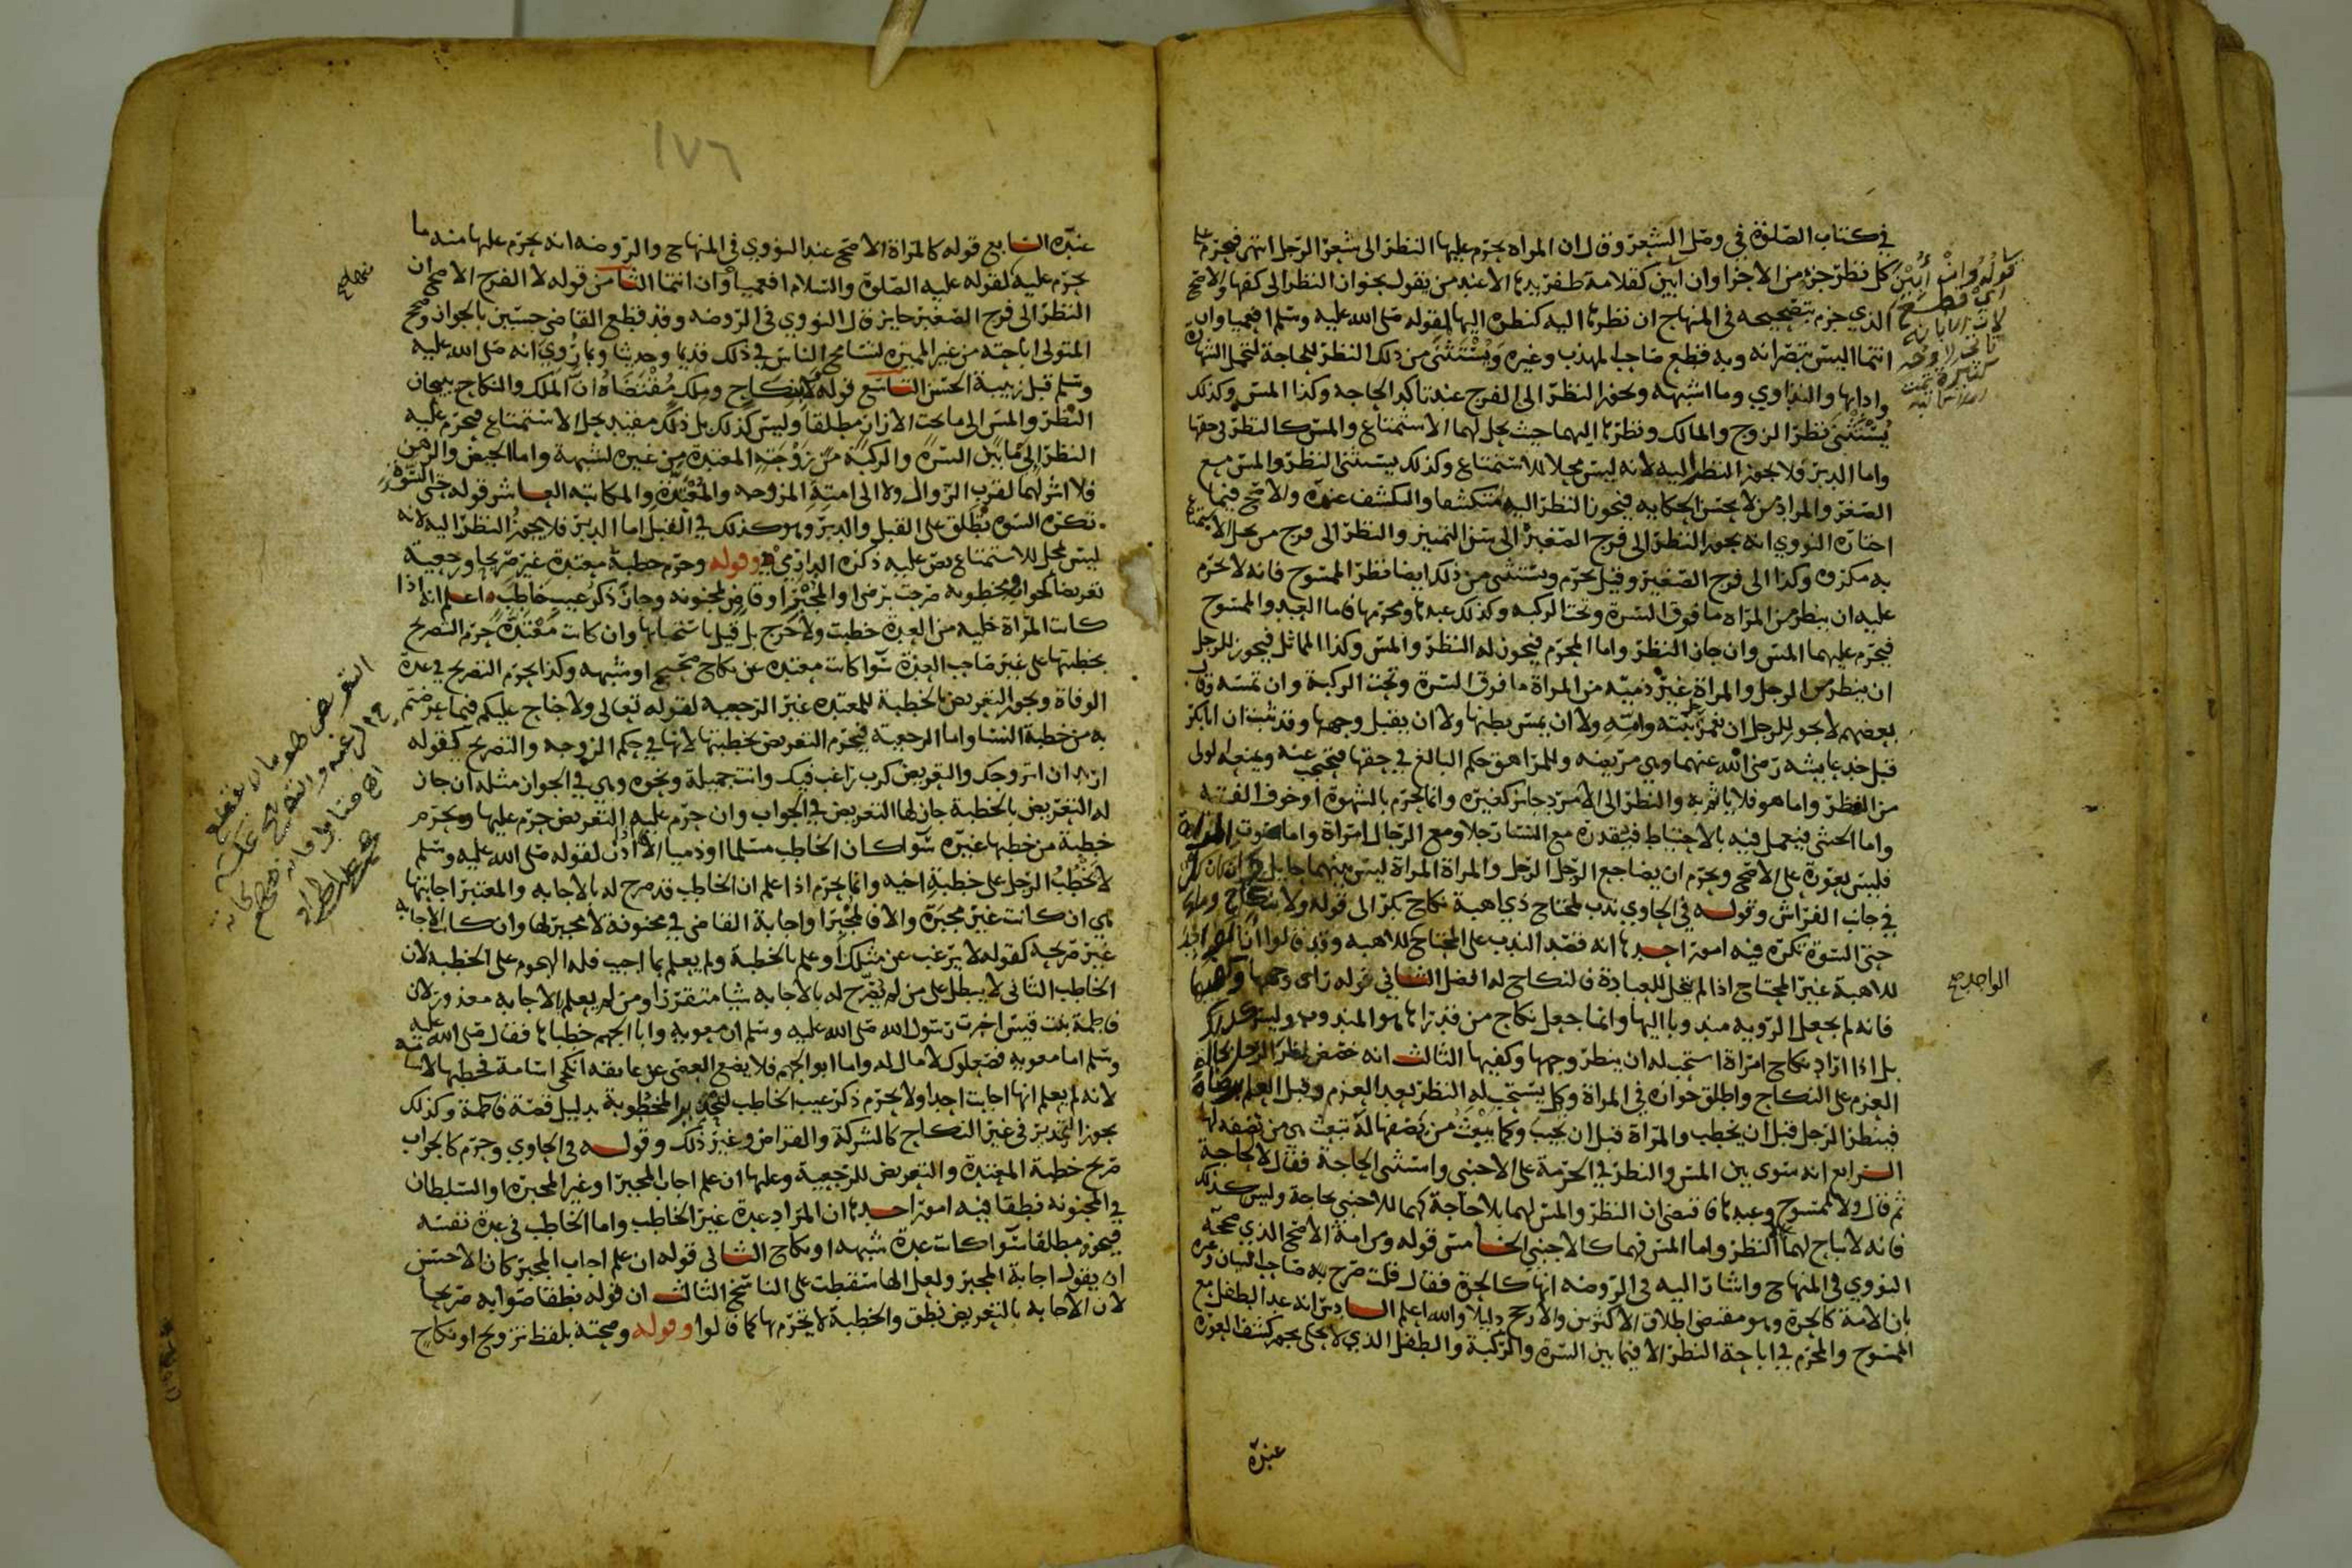 في كتاب الصلوة في وصل الشعر وقال ان المراه يحرم عليها النظر الى شعر الرجل انتهى فيحرم على
كل نظر جزء من الاجزا وان ابين كقلامة ظفر يدها الا عند من يقول بجواز النظر الى كفها والاصح
الذي جزم بتصحيحه في المنهاج ان نظرها اليه كنظره اليها لقوله صلى الله عليه وسلم افعمياوان
انتما اليس تبصرانه وبه قطع صاحب المهذب وغيره ويستثنى من ذلك النظر للحاجة لتحمل الشهادة
وادايها والتداوي وما اشبهه ويجوز النظر الى الفرج عند تاكد الحاجه وكذا المس وكذلك
يستثنى نظر الزوج والمالك ونظرها اليهما حيث يحل لهما الاستمتاع والمس كالنظر في حقها
واما الدبر فلا يجوز النظر اليه لانه ليس محلا للاستمتاع وكذلك يستثنى النظر والمس مع
الصغر والمراد من لا يحسن الحكايه فيجوز النظر اليه متكشفا والتكشف عنده والاصح فيما
اختاره النووي انه يجوز النظر الى فرج الصغير الى سن التمييز والنظر الى فرج من يحل الاستمتاع
به مكروه وكذا الى فرج الصغير وقيل يحرم ويستثنى من ذلك ايضا نظر الممسوح فانه لا يحرم
عليه ان ينظر من المراه ما فوق السرة وتحت الركبه وكذلك عبدها ومحرمها فاما العبد والممسوح
فيحرم عليهما المس وان جاز النظر واما المحرم فيجوز له النظر والمس وكذا المماثل فيجوز للرجل
ان ينظر من الرجل والمراة غير ذمية من المراة ما فوق السرة وتحت الركبة وان تمسه وقال
بعضهم لا يجوز للرجل ان تغمز رجله بنته وامته ولا ان يمس بطنها ولا ان يقبل وجهها وقد ثبت ان ابا بكر
قبل خد عايشه رضي الله عنهما وهي مريضه وللمراهق حكم البالغ في حقها فتحتجب عنه ويمنعه الولي
من النظر واما هو فلا ياثم به والنظر الى الامرد جائز كغيره وانما يحرم بالشهوة او خوف الفتنه
واما الخنثى فيعمل فيه بالاحتياط فيقدره مع النسا رجلا ومع الرجال امراة واما صوت المراة
فليس بعورة على الاصح ويحرم ان يضاجع الرجل الرجل والمراة المراة ليس بينهما حايل وان كان كل
في جانب الفراش وقوله في الحاوي ندب لمحتاج ذي اهبة نكاح بكر الى قوله ولا بنكاح وملك
حتى السوة تكره فيه امور احدها انه قصد الندب على المحتاج للاهبه وقد قالوا ان
للاهبة غير المحتاج اذا لم يتخل للعبادة فالنكاح له افضل الثاني قوله راى وجهها وكفيها
فانه لم يجعل الرويه مندوبا اليها وانما جعل نكاح من قد راها هو المندوب وليس كذلك
بل اذا اراد نكاح امراة استحب له ان ينظر وجهها وكفيها الثالث انه خصص نظر الرجل بحالة
العزم على النكاح واطلق جوازه في المراة وكل يستحب له النظر بعد العزم وقبل العلم
فينظر الرجل قبل ان يخطب والمراة قبل ان تجيب وكما يبعث من يصفها له تبعث هي من تصفه لها
الرابع انه سوى بين المس والنظر في الحرمة على الاجنبي واستثنى الحاجة فقال لا لحاجة
ثم قال ولا لممسوح وعبدها فاقتضى ان النظر والمس لهما بلا حاجة كهما للاجنبي بحاجة وليس كذلك
فانه لا يباح لهما الا النظر واما المس فهما كالاجنبي الخامس قوله ومن امة الاصح الذي صححه
النووي في المنهاج واشار اليه في الروضه انها كالحرة فقال قلت صرح به صاحب البيان وغيره
بان الامة كالحرة وهو مقتضى اطلاق الاكثرين والارجح دليلا والله اعلم السادس انه عد الطفل مع
الممسوح والمحرم في اباحة النظر الا فيما بين السرة والركبة والطفل الذي لا يحكي يجوز كشف العورة
عنده
قوله وان أبين
اي قطع
الواحد صح
١٧٦
عنده السابع قوله كالمراة الاصح عند النووي في المنهاج والروضه انه يحرم عليها منه ما
يحرم عليه لقوله عليه الصلوة والسلام افعمياوان انتما الثامن قوله لا الفرج الاصح ان
النظر الى فرج الصغير جايز قال النووي في الروضه وقد قطع القاضي حسين بالجواز وصحح
المتولي اباحته من غير المميزه لتسامح الناس في ذلك قديما وحديثا وبما روي انه صلى الله عليه
وسلم قبل زبيبة الحسن التاسع قوله لا بنكاح وملك مقتضاه ان الملك والنكاح يبيحان
النظر والمس الى ما تحت الازار مطلقا وليس كذلك بل ذلك مقيد بحل الاستمتاع فيحرم عليه
النظر الى ما بين السرة والركبة من زوجته المعتدة من غيره لشبهة واما الحيض والرهن
فلا اثر لهما لقرب الزوال ولا الى امته المزوجه والمعتدة والمكاتبه العاشر قوله حتى السوة
تكره السوة تطلق على القبل والدبر وهو كذلك في القبل اما الدبر فلا يجوز النظر اليه لانه
ليس بمحل للاستمتاع نص عليه ذكره الدارمي وقوله وحرم خطبة معتدة غير صريحا ورجعية
تعريضا كجواب ومخطوبه صرحت برضى او المجبر او قاض لمجنونه وجاز ذكر عيب خاطب اعلم انه اذا
كانت المراة خلية من العدة خطبت ولا حرج بل قيل باستحبابها وان كانت معتدة حرم التصريح
بخطبتها على غير صاحب العدة سوا كانت معتده عن نكاح صحيح او شبهه وكذا يحرم التصريح في عدة
الوفاة ويجوز التعريض بالخطبة للمعتده غير الرجعيه لقوله تعالى ولا جناح عليكم فيما عرضتم
به من خطبة النسا واما الرجعيه فيحرم التعريض بخطبتها لانها في حكم الزوجه والتصريح كقوله
اريد ان اتزوجك والتعريض كرب راغب فيك وانت جميلة ونحوه وهي في الجواب مثله ان جاز
له التعريض بالخطبة جاز لها التعريض في الجواب وان حرم عليه التعريض حرم عليها ويحرم
خطبة من خطبها غيره سوا كان الخاطب مسلما او ذميا الا ان اذن لقوله صلى الله عليه وسلم
لا يخطب الرجل على خطبة اخيه وانما يحرم اذا علم ان الخاطب قد صرح له بالاجابه والمعتبر اجابتها
هي ان كانت غير مجبرة والا فالمجبر او اجابة القاضي في مجنونة لا مجبر لها وان كانت الاجابه
غير صريحه كقوله لا يرغب عن مثلك او علم بالخطبة ولم يعلم بما اجيب فله الهجوم على الخطبه لان
الخاطب الثاني لا يبطل على من لم يصرح له بالاجابه شيا متقررا ومن لم يعلم بالاجابه معذور لان
فاطمة بنت قيس اخبرت رسول الله صلى الله عليه وسلم ان معويه وابا الجهم خطباها فقال صلى الله عليه
وسلم اما معويه فصعلوك لا مال له واما ابو الجهم فلا يضع العصى عن عاتقه انكحي اسامة فخطبها لاسامة
لانه لم يعلم انها اجابت احدا ولا يحرم ذكر عيب الخاطب لتحذير المخطوبة بدليل قصة فاطمة وكذلك
يجوز التحذير في غير النكاح كالشركة والقراض وغير ذلك وقوله في الحاوي وحرم كالجواب
صريح خطبة المعتدة والتعريض للرجعية وعليها ان علم اجاب المجبر او غير المجبرة او السلطان
في المجنونه نطقا فيه امور احدها ان المراد عدة غير الخاطب واما الخاطب في عدة نفسه
فيجوز مطلقا سوا كانت عدة شبهه او نكاح الثاني قوله ان علم اجاب المجبر كان الاحسن
ان يقول اجابة المجبر ولعل الها سقطت على الناسخ الثالث ان قوله نطقا صوابه صريحا
لان الاجابه بالتعريض نطق والخطبة لا يحرم بها كما قالوا وقوله وصحته بلفظ تزويج او نكاح